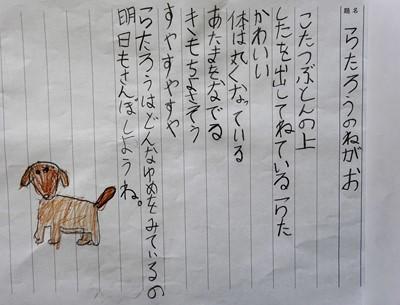 題名
らたろうのねがお
こたつぶとんの上
したを出してねているらた
かわいい
体は丸くなっている
あたまをなでる
きもちよさそう
すやすやすや
らたろうはどんなゆめをみているの
明日もさんぽしようね。